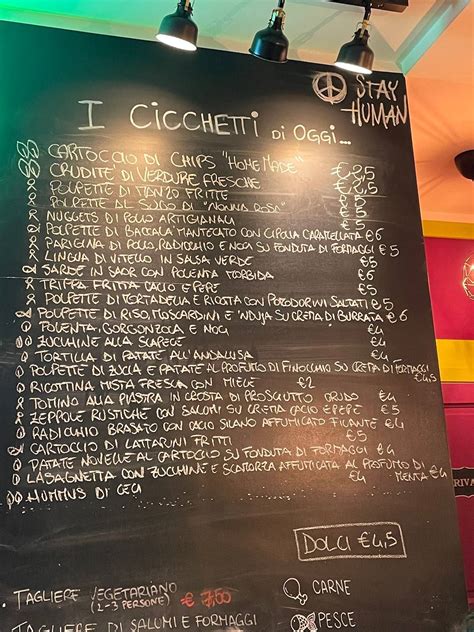 STAY
HUMAN
I CICCHETTI DI OGGI...
CARTOCCIO DI CHIPS "HOMEMADE" €2,5
CRUDITÉ DI VERDURE FRESCHE €2,5
POLPETTE DI MANZO FRITTE €5
POLPETTE AL SUGO DI "NONNA ROSA" €5
NUGGETS DI POLLO ARTIGIANALI €5
POLPETTE DI BACCALÀ MANTECATO CON CIPOLLA CARAMELLATA €6
PARIGINA DI POLLO, RADICCHIO E NOCI SU FONDUTA DI FORMAGGI €5
LINGUA DI VITELLO IN SALSA VERDE €5
SARDE IN SAOR CON POLENTA MORBIDA €6
TRIPPA FRITTA CACIO E PEPE €5
POLPETTE DI MORTADELLA E RICOTTA CON POMODORINI SALTATI €5
POLPETTE DI RISO, MOSCARDINI E 'NDUJA SU CREMA DI BURRATA €6
POLENTA, GORGONZOLA E NOCI €4
ZUCCHINE ALLA SCAPECE €4
TORTILLA DI PATATE ALL'ANDALUSA €4
POLPETTE DI ZUCCA E PATATE AL PROFUMO DI FINOCCHIO SU CREMA DI FORMAGGI €4,5
RICOTTINA MISTA FRESCA CON MIELE €2
TOMINO ALLA PIASTRA IN CROSTA DI PROSCIUTTO CRUDO €4
ZEPPOLE RUSTICHE CON SALUMI SU CREMA CACIO E PEPE €5
RADICCHIO BRASATO CON CACIO SILANO AFFUMICATO FILANTE €4
CARTOCCIO DI LATTARINI FRITTI €5
PATATE NOVELLE AL CARTOCCIO SU FONDUTA DI FORMAGGI €4
LASAGNETTA CON ZUCCHINE E SCAMORZA AFFUMICATA AL PROFUMO DI MENTA €4
HUMMUS DI CECI €4
DOLCI €4,5
TAGLIERE VEGETARIANO
(2-3 PERSONE) € 7,00
CARNE
TAGLIERE DI SALUMI E FORMAGGI
PESCE